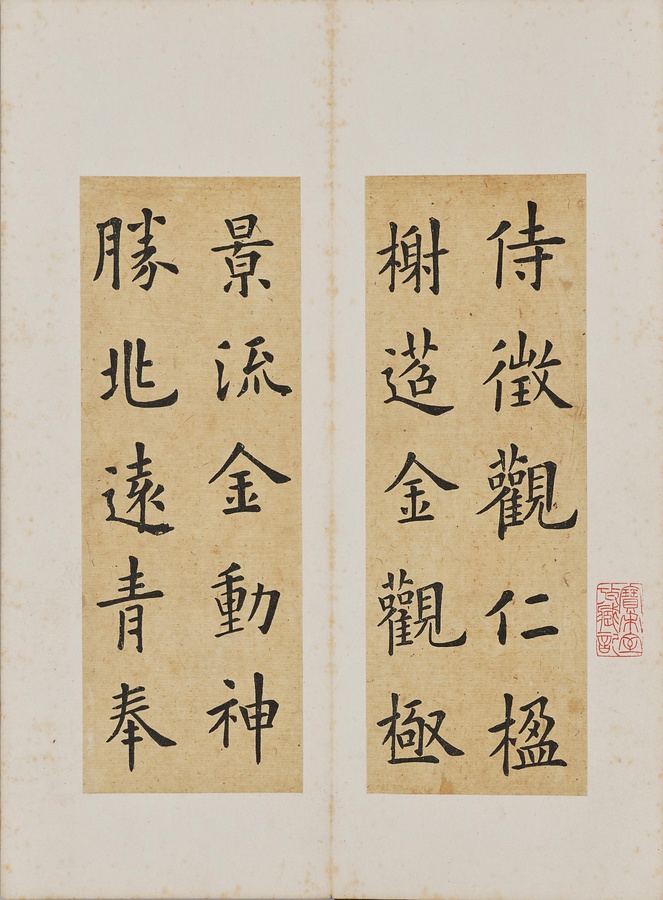 侍徵觀仁楹
榭造金觀極
景流金動神
勝兆遠青奉